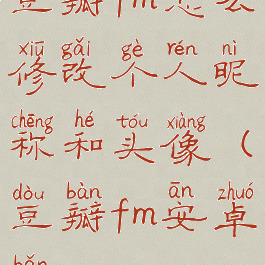 豆瓣fm怎么
xiū gǎi gè rén nì
修改个人昵
chēng hé tóu xiàng
称和头像（
dòu bàn ān zhuó
豆瓣fm安卓
bǎn